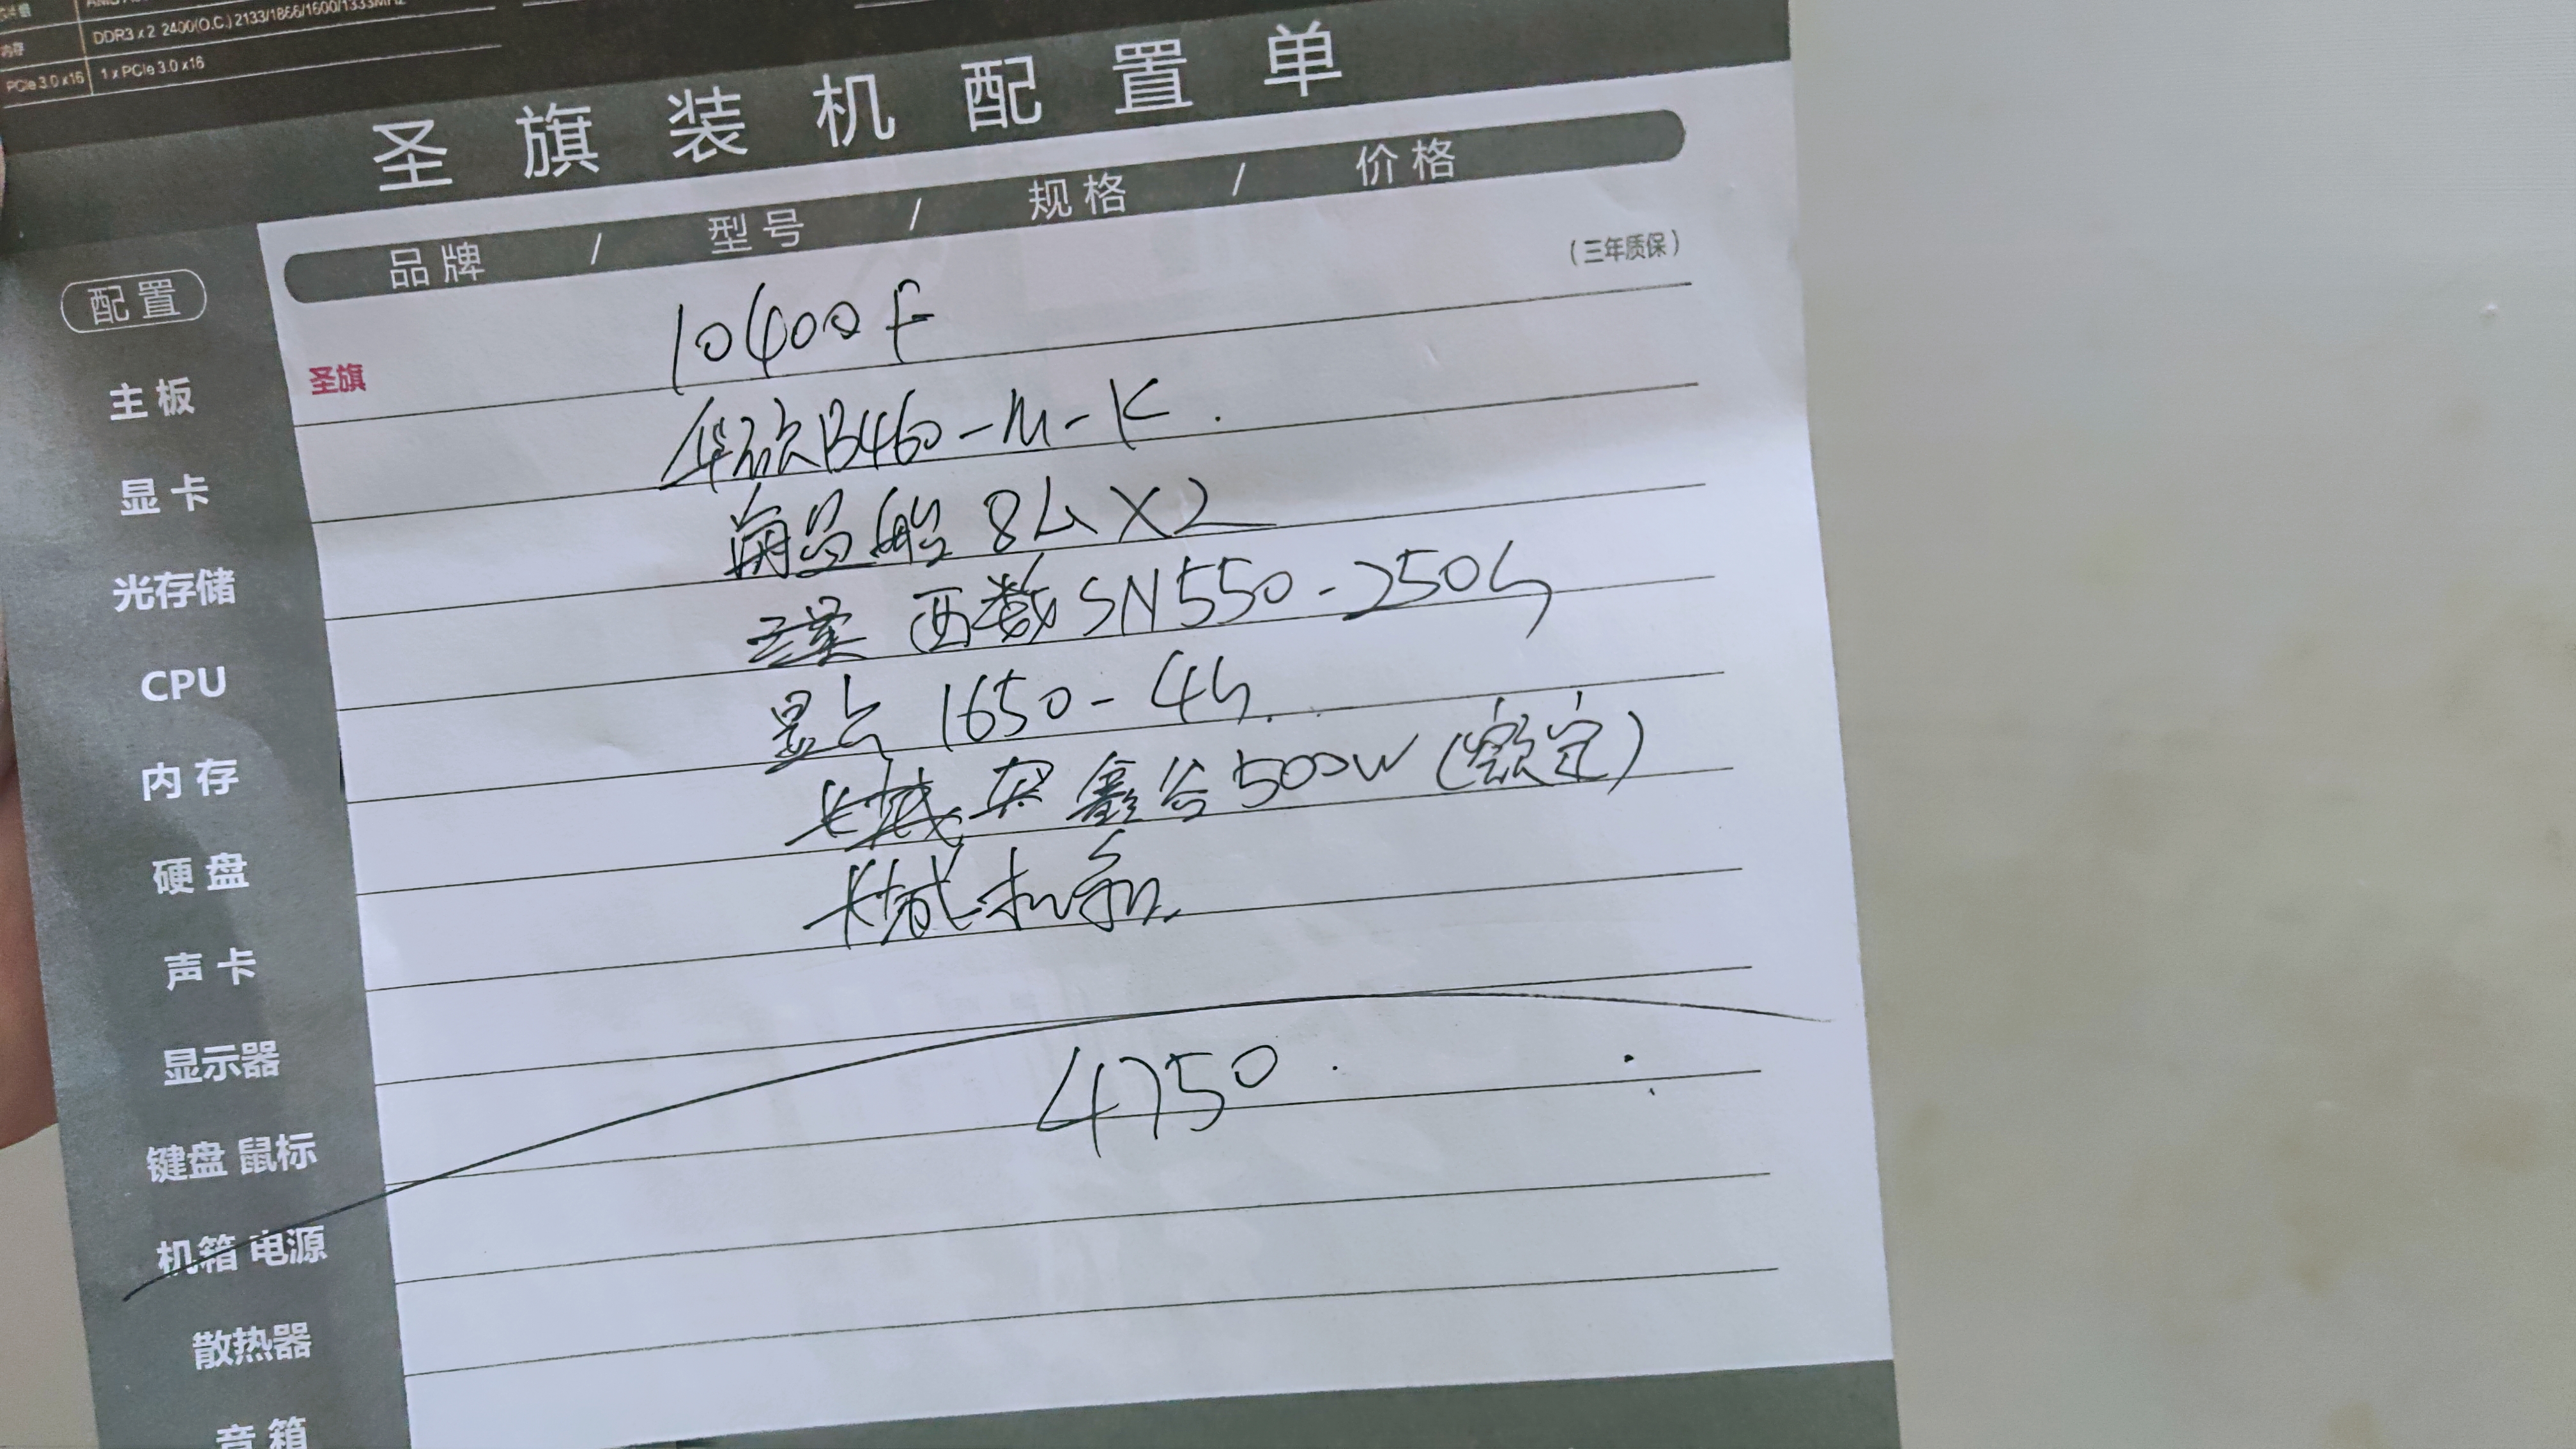 DDR3 x 2 2400(O.C.) 2133/1866/1600/1333MHz
内存
PCIe 3.0 x16 1 x PCIe 3.0 x16
圣旗装机配置单
品牌 / 型号 / 规格 / 价格
(三年质保)
配置
圣旗
10400F
主板
华硕B460-M-K.
显卡
8G X2
光存储
西数SN550-250G
CPU
显卡 1650-4G.
内存
长城 鑫谷500W(额定)
硬盘
长城机箱
声卡
显示器
4750.
键盘 鼠标
机箱 电源
散热器
音箱